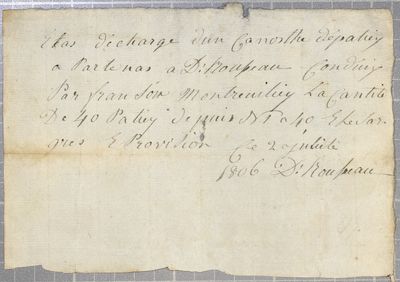 Etas décharge dun Canosthe dépatiey
a Partenas a Dl Rousseau Conduis
Par fran son Montreuilley La Cantité
De 40 Patiey depuis N 1 a 40 E Le
gres E Provision Ce 2 juillié
1806 Dl Rousseau